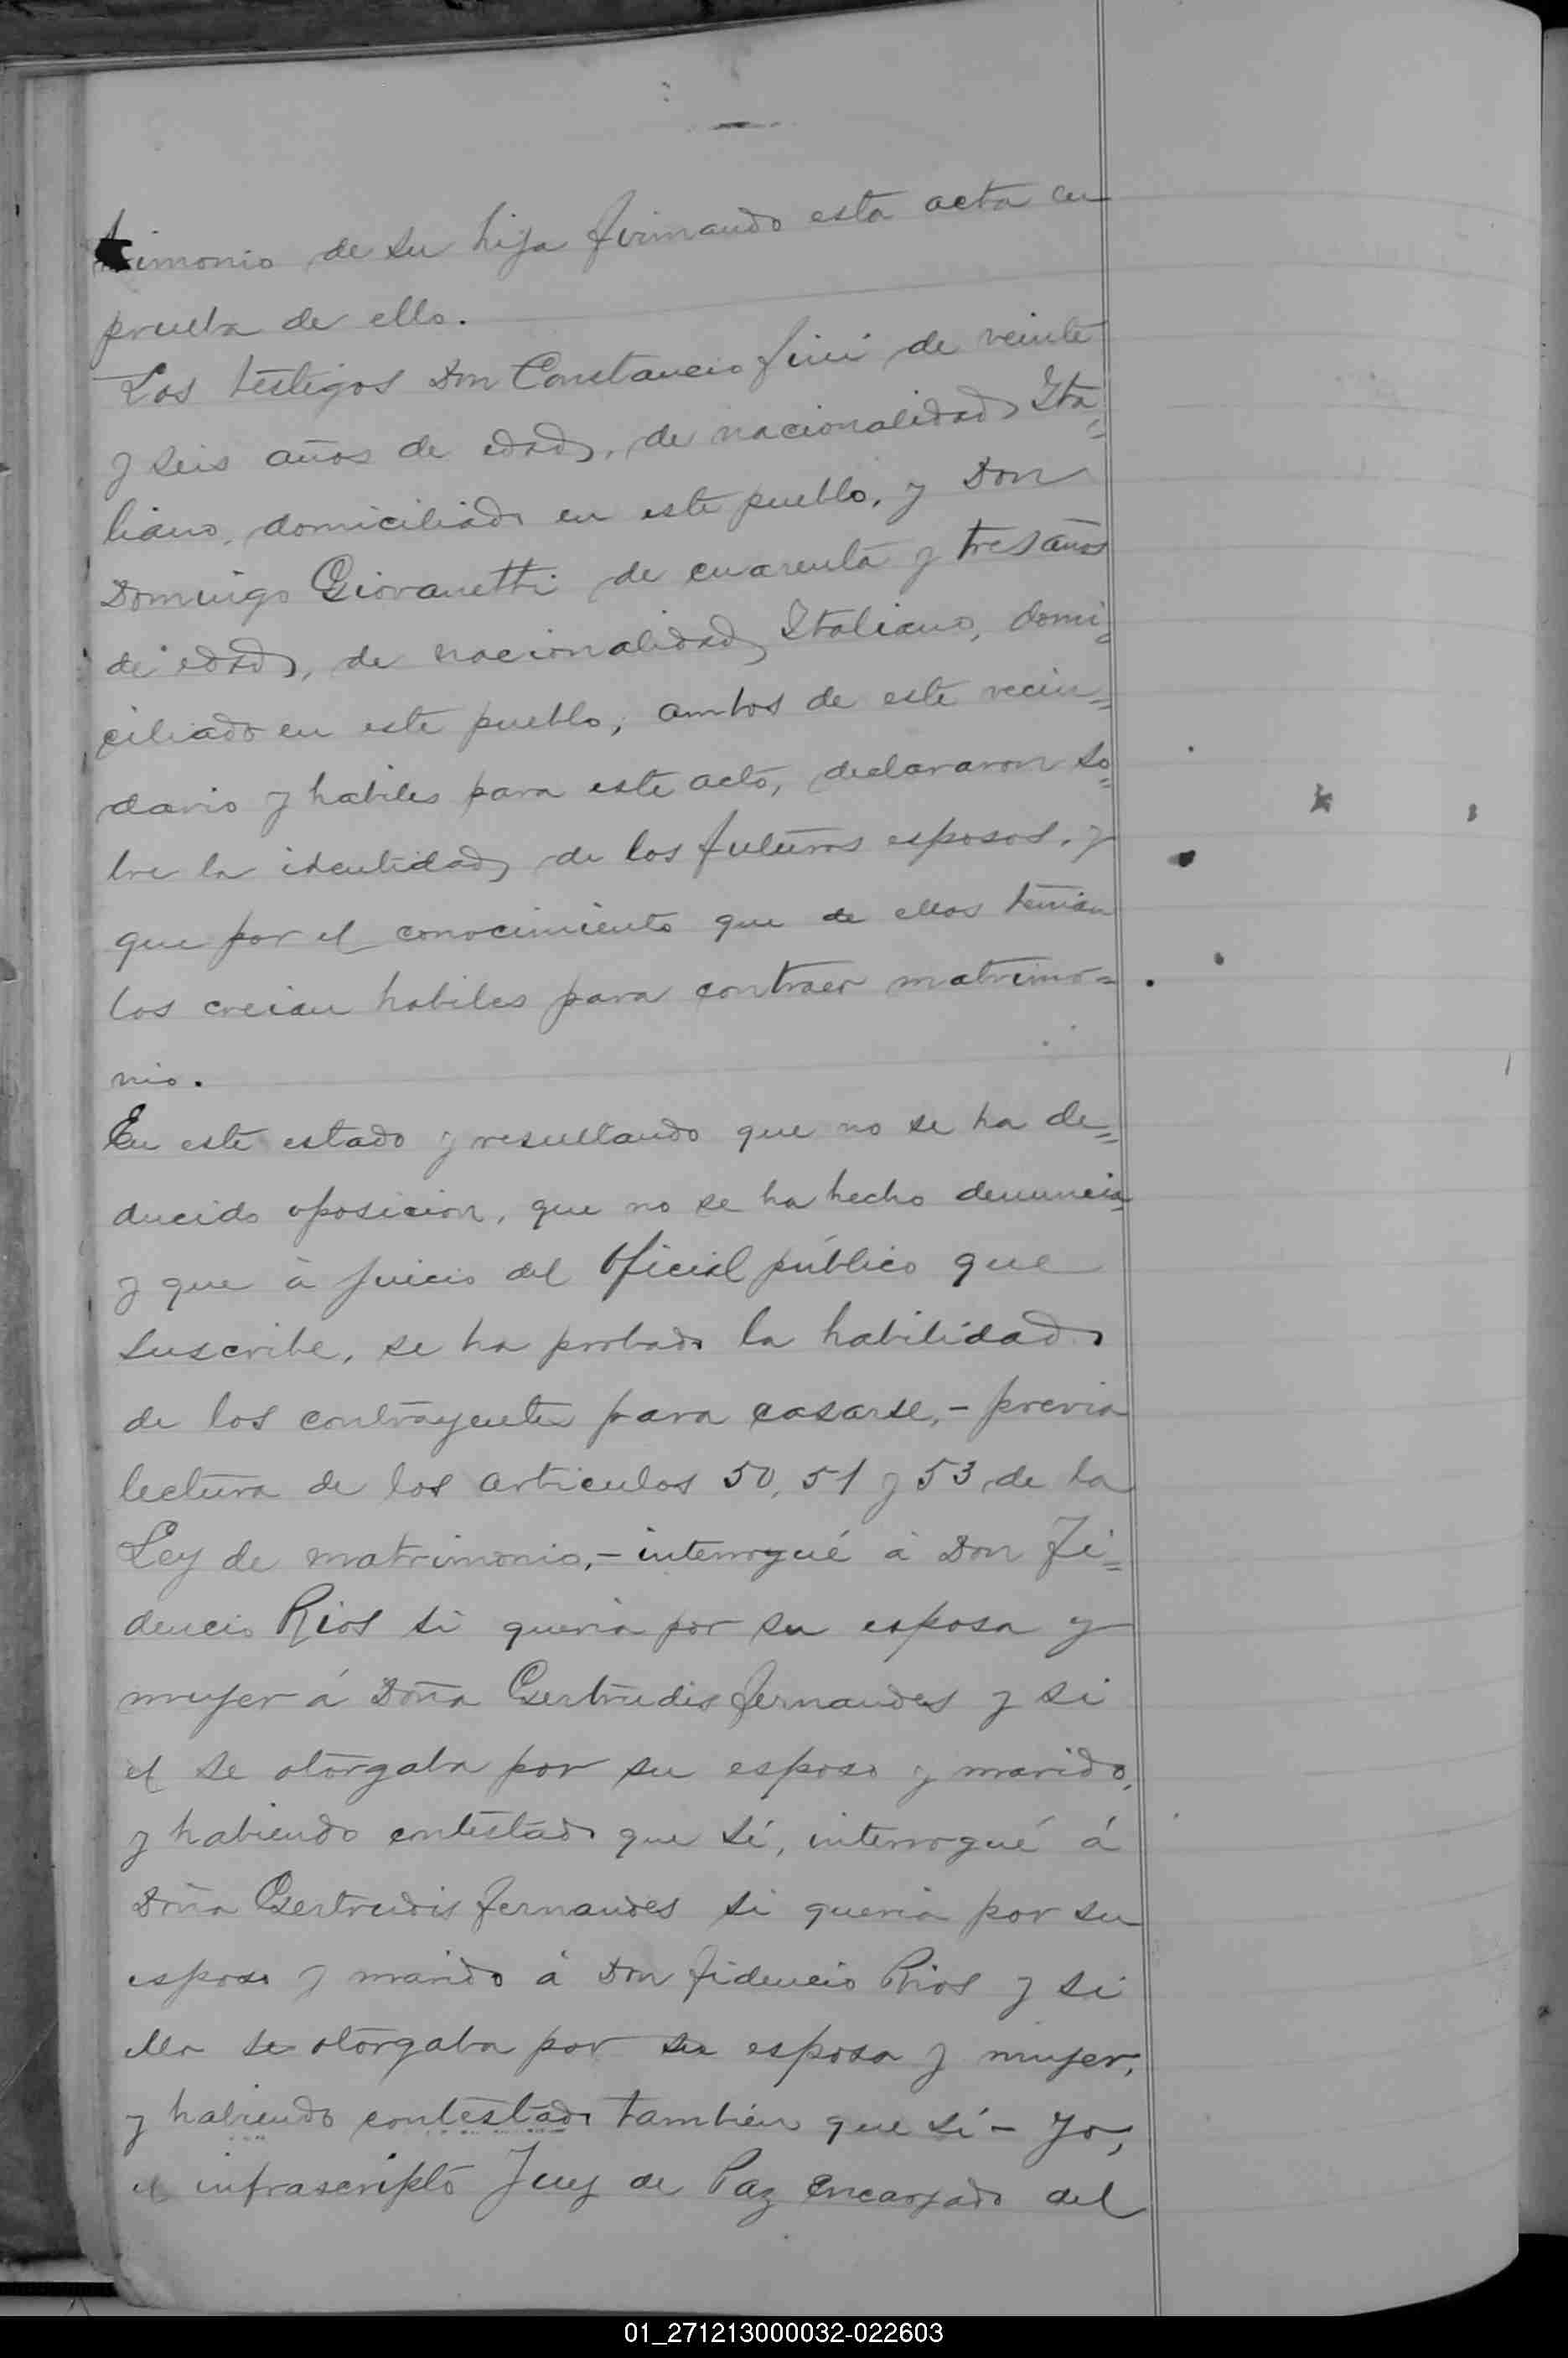 trimonio de su hija firmando esta acta en
prueba de ello.
Los testigos Don Constancio Fini de veinte
y seis años de edad, de nacionalidad Ita=
liano, domiciliado en este pueblo, y Don
Domingo Giovanetti de cuarenta y tres años
de edad, de nacionalidad Italiano, domi=
ciliado en este pueblo, ambos de este vecin=
dario y habiles para este acto, declararon so=
bre la identidad de los futuros esposos, y
que por el conocimiento que de ellos tenian
los creian habiles para contraer matrimo=
nio.
En este estado y resultando que no se ha de=
ducido oposicion, que no se ha hecho denuncia,
y que á juicio del Oficial público que
suscribe, se ha probado la habilidad
de los contrayentes para casarse,- previa
lectura de los articulos 50, 51 y 53 de la
Ley de matrimonio,- interrogué á Don Fi=
dencio Rios si queria por su esposa y
mujer á Doña Gertrudis Fernandes y si
el se otorgaba por su esposo y marido,
y habiendo contestado que sí, interrogué á
Doña Gertrudis Fernandes si queria por su
esposo y marido á Don Fidencio Rios y si
ella se otorgaba por su esposa y mujer,
y habiendo contestado tambien que sí- Yo,
el infrascripto Juez de Paz encargado del
01_271213000032-022603